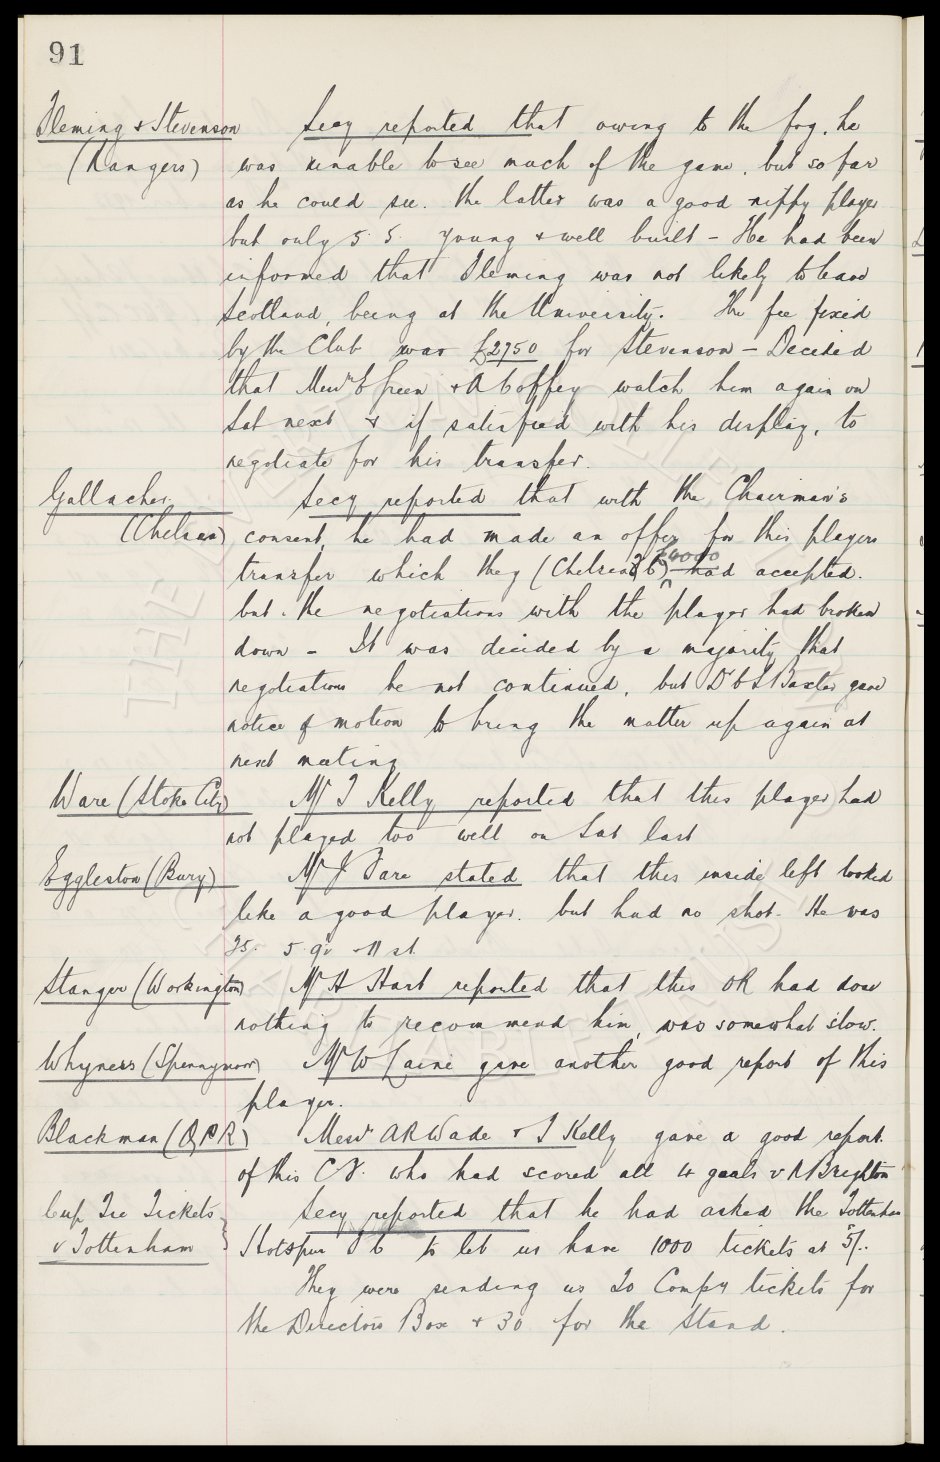 91
Fleming & Stevenson Secy reported that owing to the fog, he
(Rangers) was unable to see much of the game, but so far
as he could see, the latter was a good nippy player
but only 5.5. young & well built - He had been
informed that Fleming was not likely to leave
Scotland, being at the University. The fee fixed
by the Club was £2750 for Stevenson - Decided
that Messrs C Green & A Coffey watch him again on
Sat next & if satisfied with his display, to
negotiate for his transfer.
Gallacher Secy reported that with the Chairman's
(Chelsea) consent, he had made an offer for this players
£4000
transfer which they (Chelsea F C) had accepted.
but the negotiations with the player had broken
down - It was decided by a majority that
negotiations be not continued, but Dr C S Baxter gave
notice of motion to bring the matter up again at
next meeting
Ware (Stoke City) Mr T Kelly reported that this player had
not played too well on Sat last
Eggleston (Bury) Mr J Fare stated that this inside left looked
like a good player, but had no shot. He was
25. 5.9½ - 11 st
Stanger (Workington) Mr H Hart reported that this OR had done
nothing to recommend him, was somewhat slow.
Whyness (Spennymoor) Mr W Laine gave another good report of this
player.
Blackman (QPR) Messrs A R Wade & T Kelly gave a good report
of this CF. who had scored all 4 goals v Brighton
Cup Tie Tickets Secy reported that he had asked the Tottenham
v Tottenham Hotspur F C to let us have 1000 tickets at 5/-.
They were sending us 20 Compy tickets for
the Directors Box & 30 for the Stand.